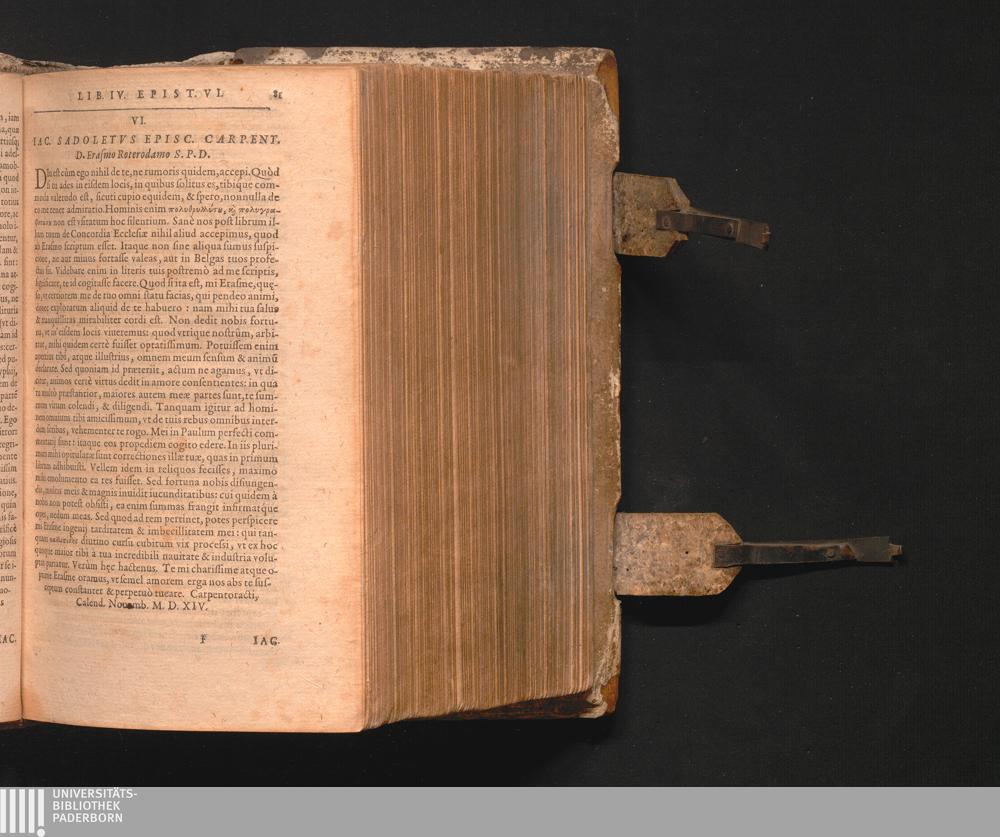 LIB. IV. EPIST. VI. 81
VI.
IAC. SADOLETVS EPISC. CARPENT.
D. Erasmo Roterodamo S. P. D.
Diu est cùm ego nihil de te, ne rumoris quidem, accepi. Quòd
si tu ades in eisdem locis, in quibus solitus es, tibique com-
moda valetudo est, sicuti cupio equidem, & spero, nonnulla de
te me tenet admiratio. Hominis enim
non est vsitatum hoc silentium. Sanè nos post librum il-
lum tuum de Concordia Ecclesiæ nihil aliud accepimus, quod
ab Erasmo scriptum esset. Itaque non sine aliqua sumus suspi-
cione, ne aut minus fortasse valeas, aut in Belgas tuos profe-
ctus sis. Videbare enim in literis tuis postremò ad me scriptis,
significare, te id cogitasse facere. Quod si ita est, mi Erasme, quę-
so, vt certiorem me de tuo omni statu facias, qui pendeo animi,
donec exploratum aliquid de te habuero : nam mihi tua salus
& tranquillitas mirabiliter cordi est. Non dedit nobis fortu-
na, vt in eisdem locis viueremus: quod vtrique nostrûm, arbi-
tror, mihi quidem certè fuisset optatissimum. Potuissem enim
apertius tibi, atque illustrius, omnem meum sensum & animũ
declarare. Sed quoniam id præteriit, actum ne agamus, vt di-
citur, animos certè virtus dedit in amore consentientes: in qua
tu multò præstantior, maiores autem meæ partes sunt, te sum-
mum virum colendi, & diligendi. Tanquam igitur ad homi-
nem omnium tibi amicissimum, vt de tuis rebus omnibus inter-
dum scribas, vehementer te rogo. Mei in Paulum perfecti com-
mentarij sunt: itaque eos propediem cogito edere. In iis pluri-
mum mihi opitulatæ sunt correctiones illæ tuæ, quas in primum
librum adhibuisti. Vellem idem in reliquos fecisses, maximo
mihi emolumento ea res fuisset. Sed fortuna nobis disiungen-
dis, multis meis & magnis inuidit iucunditatibus: cui quidem à
nobis non potest obsisti, ea enim summas frangit infirmatque
opes, nedum meas. Sed quod ad rem pertinet, potes perspicere
mi Erasme ingenij tarditatem & imbecillitatem mei: qui tan-
quam diutino cursu cubitum vix processi, vt ex hoc
quoque maior tibi à tua incredibili nauitate & industria volu-
ptas pariatur. Verùm hęc hactenus. Te mi charissime atque o-
ptime Erasme oramus, vt semel amorem erga nos abs te sus-
ceptum constanter & perpetuò tueare. Carpentoracti,
Calend. Nouemb. M. D. XIV.
F IAC.
IAC.
UNIVERSITÄTS-
BIBLIOTHEK
PADERBORN